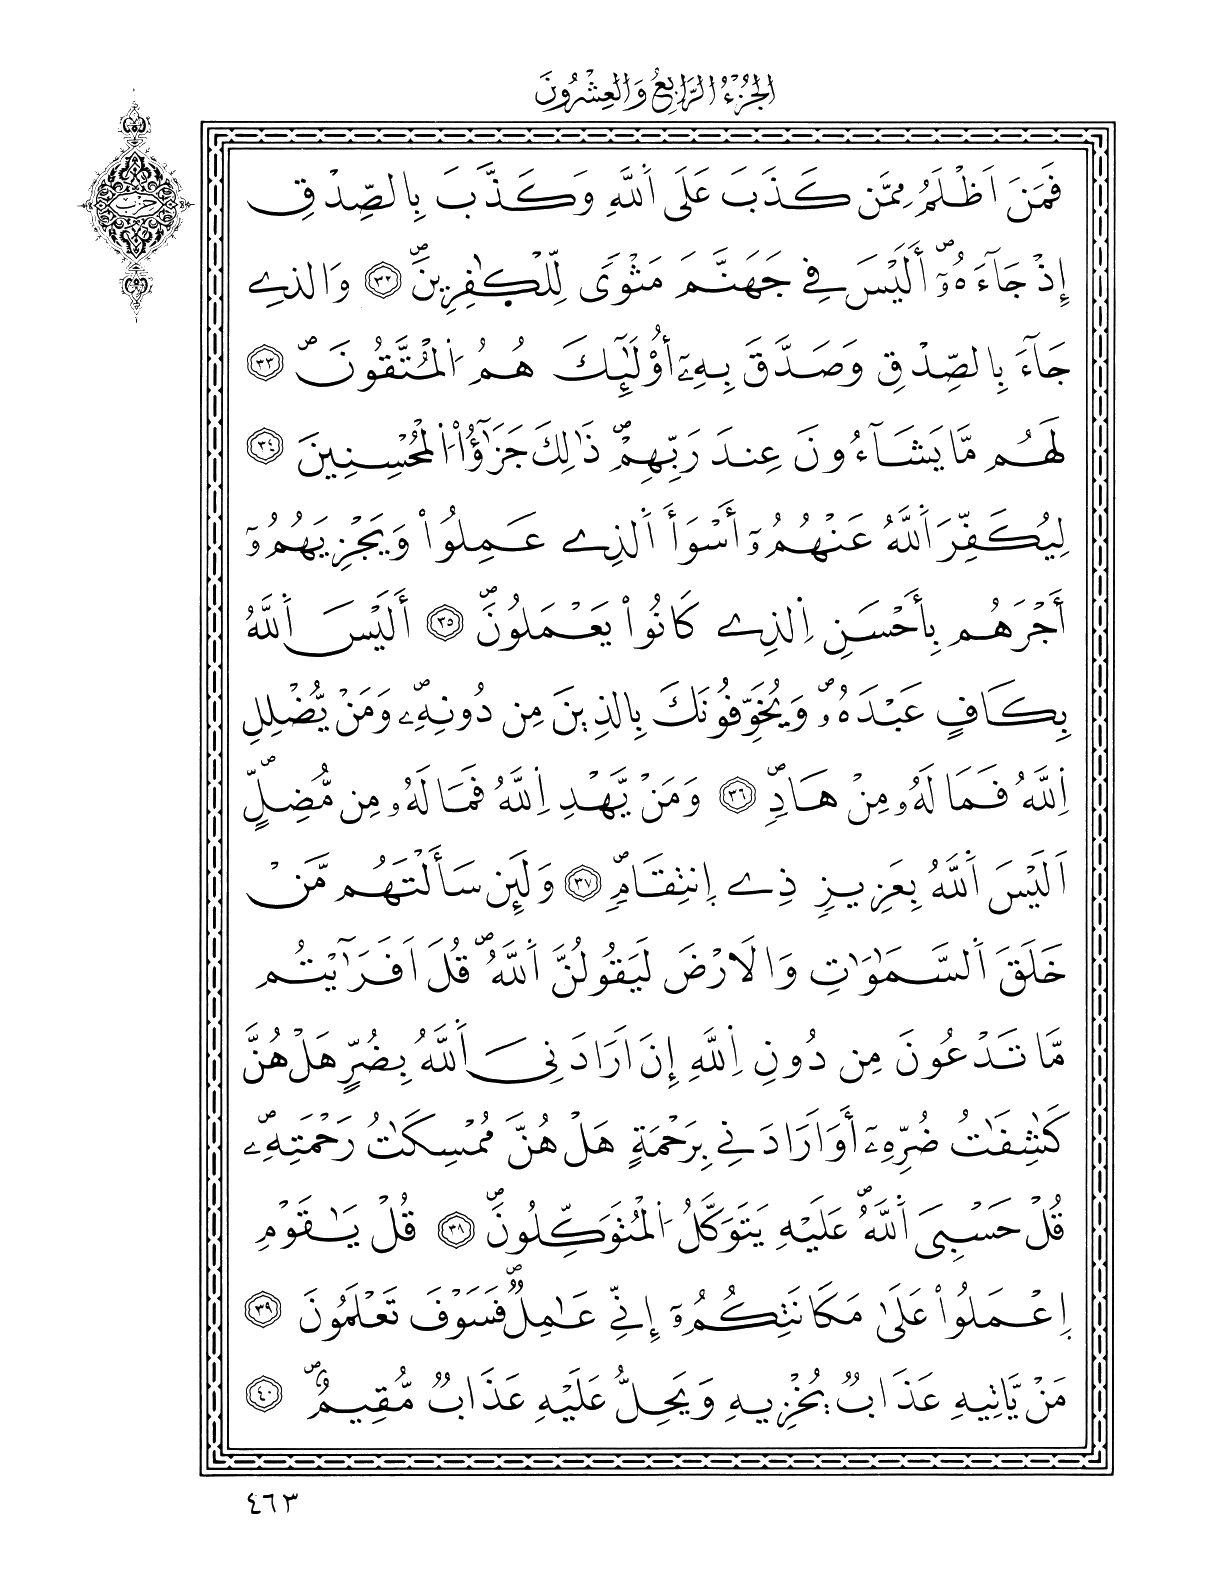 الجُزْءُ الرَّابِعُ وَالْعِشْرُونَ
حِزْب
فَمَنَ اَظْلَمُ مِمَّن كَذَبَ عَلَى اَ۬للَّهِ وَكَذَّبَ بِالصِّدْقِ
إِذْ جَآءَهُۥٓۖ أَلَيْسَ فِے جَهَنَّمَ مَثْوىٗ لِّلْكٰ۪فِرِينَۖ ٣٢ وَالذِے
جَآءَ بِالصِّدْقِ وَصَدَّقَ بِهِۦٓ أُوْلَٰٓئِكَ هُمُ اُ۬لْمُتَّقُونَۖ ٣٣
لَهُم مَّا يَشَآءُونَ عِندَ رَبِّهِمْۖ ذَٰلِكَ جَزَٰٓؤُاْ اُ۬لْمُحْسِنِينَ ٣٤
لِيُكَفِّرَ اَ۬للَّهُ عَنْهُمُۥٓ أَسْوَأَ اَ۬لذِے عَمِلُواْ وَيَجْزِيَهُمُۥٓ
أَجْرَهُم بِأَحْسَنِ اِ۬لذِے كَانُواْ يَعْمَلُونَۖ ٣٥ أَلَيْسَ اَ۬للَّهُ
بِكَافٍ عَبْدَهُۥۖ وَيُخَوِّفُونَكَ بِالذِينَ مِن دُونِهِۦۖ وَمَنْ يُّضْلِلِ
اِ۬للَّهُ فَمَا لَهُۥ مِنْ هَادٖۖ ٣٦ وَمَنْ يَّهْدِ اِ۬للَّهُ فَمَا لَهُۥ مِن مُّضِلٍّۖ
اَلَيْسَ اَ۬للَّهُ بِعَزِيزٖ ذِے اِ۪نتِقَامٖۖ ٣٧ وَلَئِن سَأَلْتَهُم مَّنْ
خَلَقَ اَ۬لسَّمَٰوَٰتِ وَالَارْضَ لَيَقُولُنَّ اَ۬للَّهُۖ قُلَ اَفَرَٰٓيْتُم
مَّا تَدْعُونَ مِن دُونِ اِ۬للَّهِ إِنَ اَرَادَنِيَ اَ۬للَّهُ بِضُرٍّ هَلْ هُنَّ
كَٰشِفَٰتُ ضُرِّهِۦٓ أَوَ اَرَادَنِے بِرَحْمَةٍ هَلْ هُنَّ مُمْسِكَٰتُ رَحْمَتِهِۦۖ
قُلْ حَسْبِيَ اَ۬للَّهُۖ عَلَيْهِ يَتَوَكَّلُ اُ۬لْمُتَوَكِّلُونَۖ ٣٨ قُلْ يَٰقَوْمِ
اِ۪عْمَلُواْ عَلَىٰ مَكَانَتِكُمُۥٓ إِنِّے عَٰمِلٞۖ فَسَوْفَ تَعْلَمُونَ ٣٩
مَنْ يَّاتِيهِ عَذَابٞ يُخْزِيهِ وَيَحِلُّ عَلَيْهِ عَذَابٞ مُّقِيمٌۖ ٤٠
٤٦٣